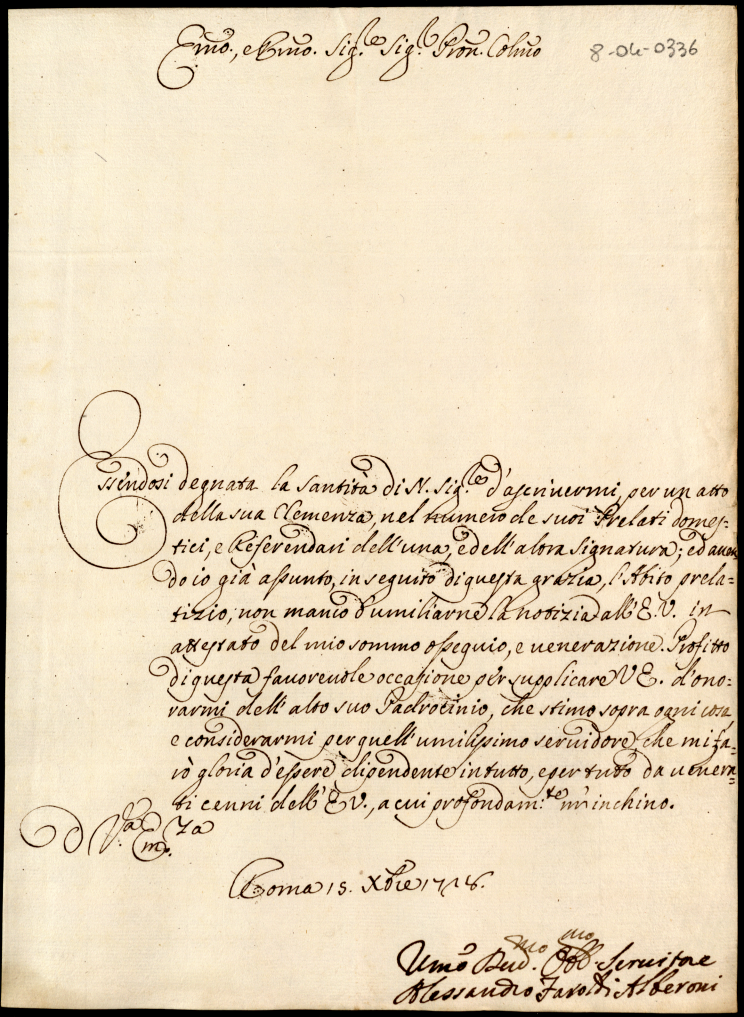 Emo., e Rmo. Sig.re Sig.r Pron. Colmo
8-04-0336
Essendosi degnata la Santità di N. Sig.re d'ascrivermi, per un atto
della sua Clemenza, nel numero de suoi Prelati domes-
tici, e Referendari dell'una, e dell'altra Signatura; ed auen-
do io già assunto, in seguito di questa grazia, l'Abito prela-
tizio; non manco d'umiliarne la notizia all'E. V. in
attestato del mio sommo ossequio, e uenerazione. Profitto
di questa fauoreuole occasione per supplicare V E. d'ono-
rarmi dell'alto suo Padrocinio, che stimo sopra ogni cosa
e considerarmi per quell'umilissimo seruidore, che mi fa-
rò gloria d'essere dipendente in tutto, e per tutto da uenera-
ti cenni dell'E V., a cui profondam:te m'inchino.
D V.a Em.za
Roma 15. Xbre 1726.
Umo Deu.mo Obb.mo Seruitore
Alessandro Faroldi Alberoni